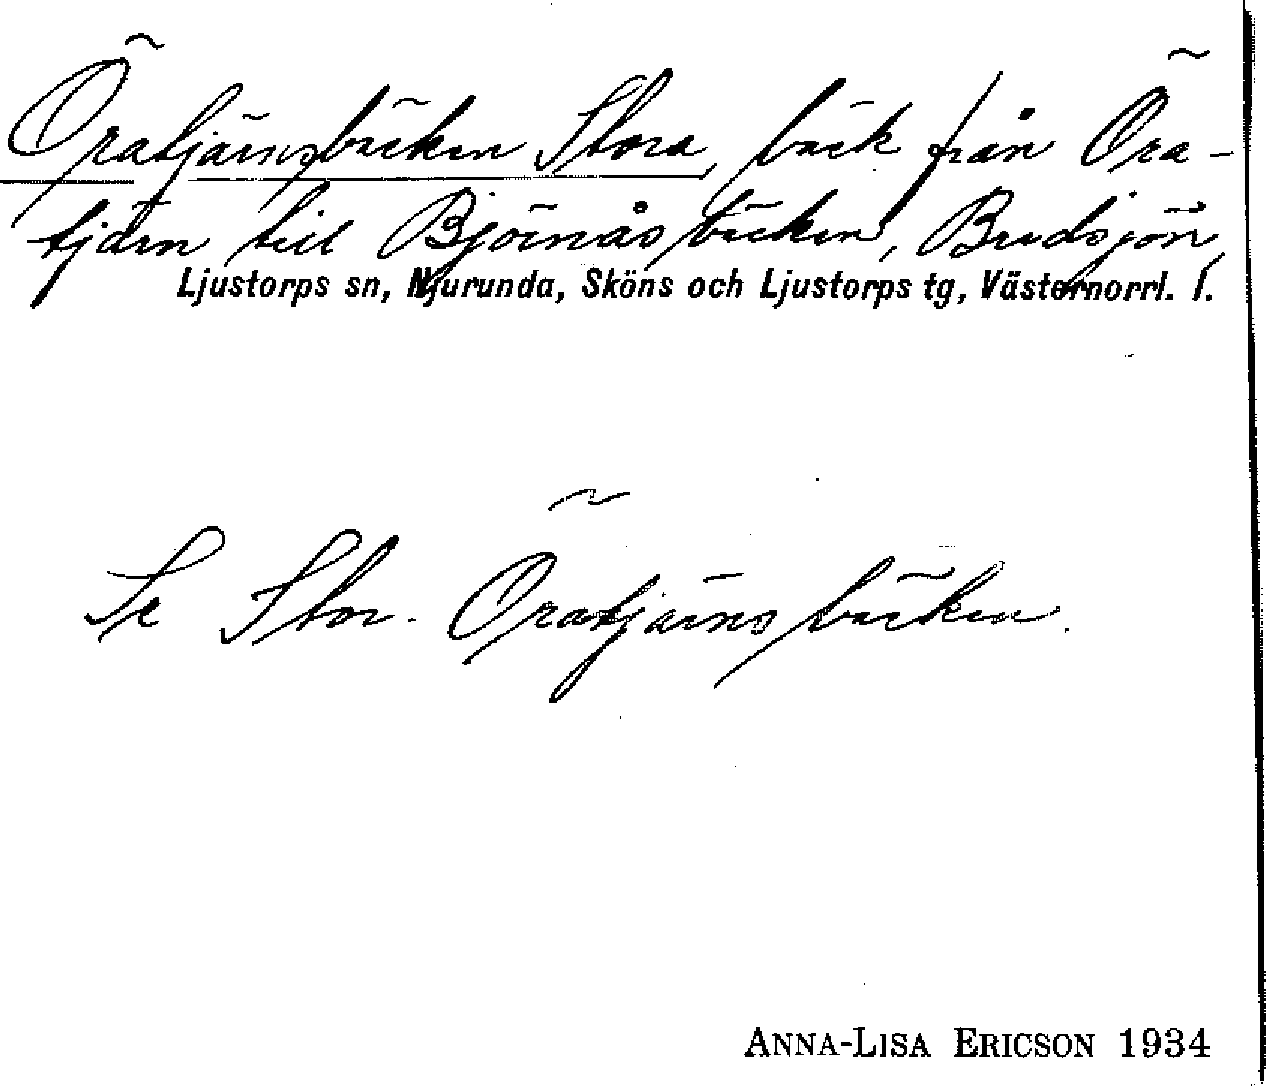 Öratjärnsbäcken Stora, bäck från Öra-
tjärn till Björnåsbäcken, Bredsjön,
Ljustorps sn, Njurunda, Sköns och Ljustorps tg, Västernorrl. l.
Se Stor-Öratjärnsbäcken.
ANNA-LISA ERICSON 1934